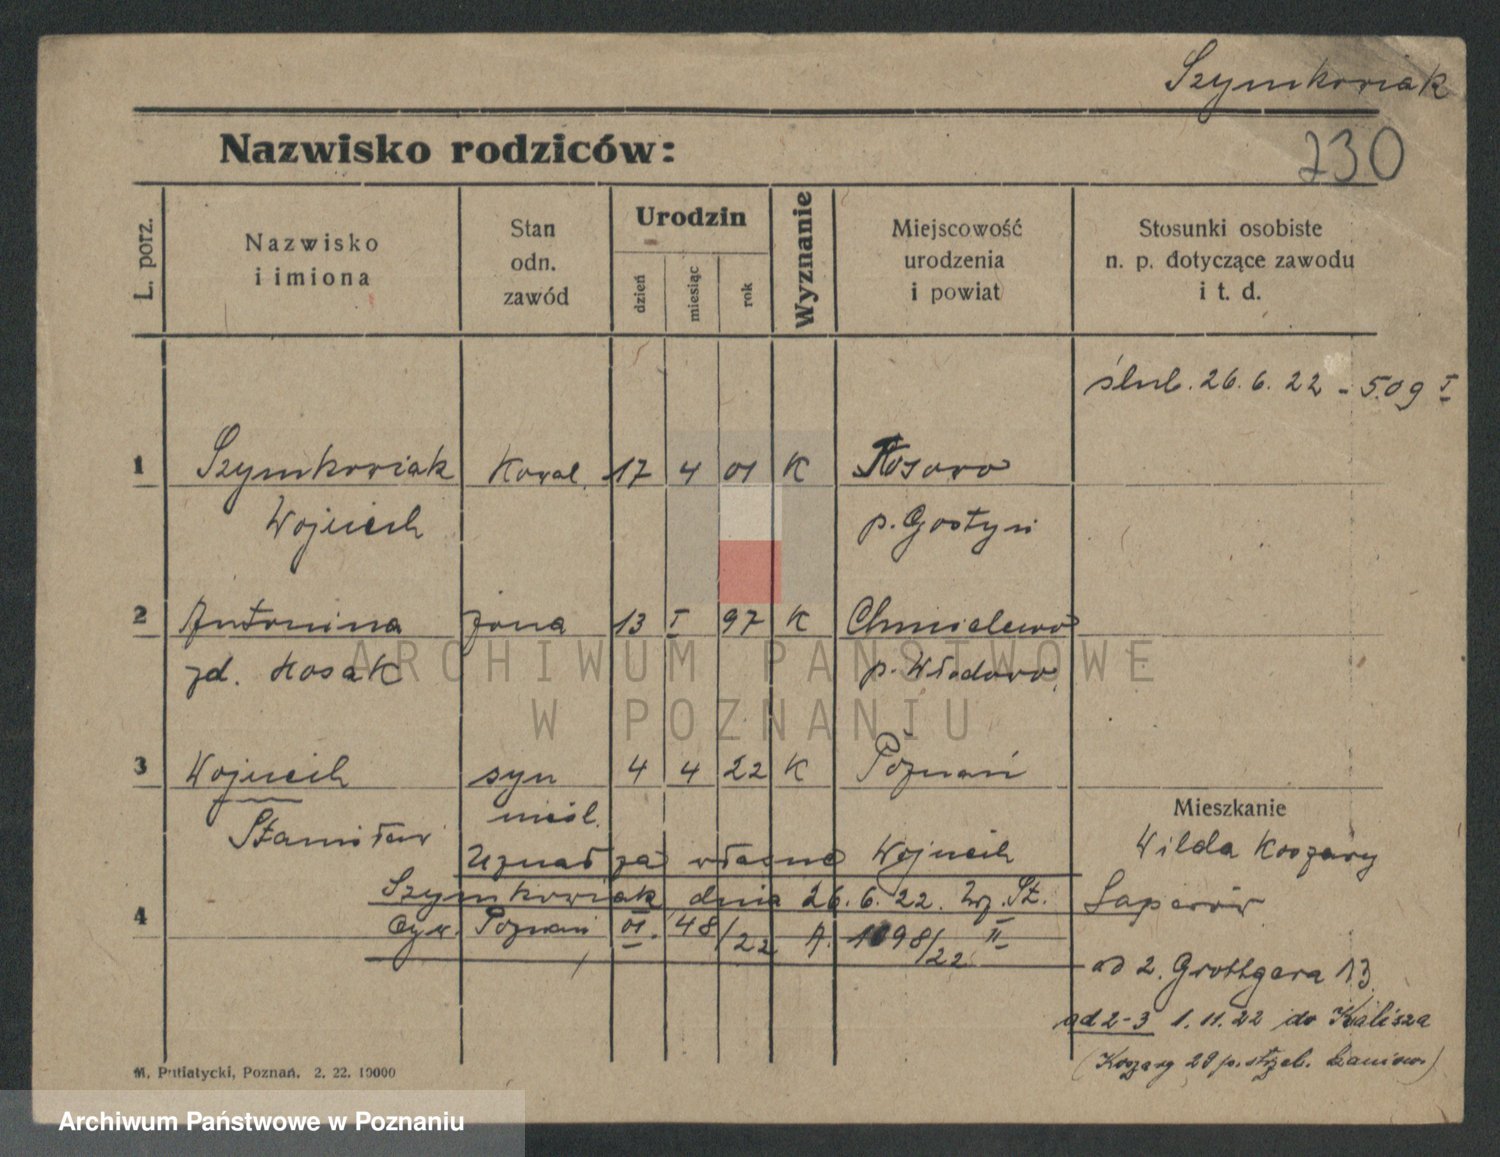 Szymkowiak
Nazwisko rodziców:
230
L. porz.
Nazwisko
i imiona
Stan
odn.
zawód
Urodzin
dzień
miesiąc
rok
Wyznanie
Miejscowość
urodzenia
i powiat
Stosunki osobiste
n. p. dotyczące zawodu
i t. d.
ślub. 26. 6. 22 - 509 I
1 Szymkowiak Kowal. 17 4 01 K
Wojciech p. Gostyń
2 Antonina żona 13 I 97 K Chmielewo
zd. Kosak p.
3 Wojciech syn 4 4 22 K Poznań
Stanisław nieśl.
Mieszkanie
Wilda Koszary
Saperów
Uznał za własne Wojciech
Szymkowiak dnia 26. 6. 22. St.
4 Poznań 48/22 A. 1098/22 II
ad 2. Grottgera 13.
ad 2-3 1. 11. 22 do Kalisza
(Koszary 29 p. strzel. Kaniow.)
M. Putiatycki, Poznań. 2. 22. 10000
ARCHIWUM PAŃSTWOWE
W POZNANIU
Archiwum Państwowe w Poznaniu